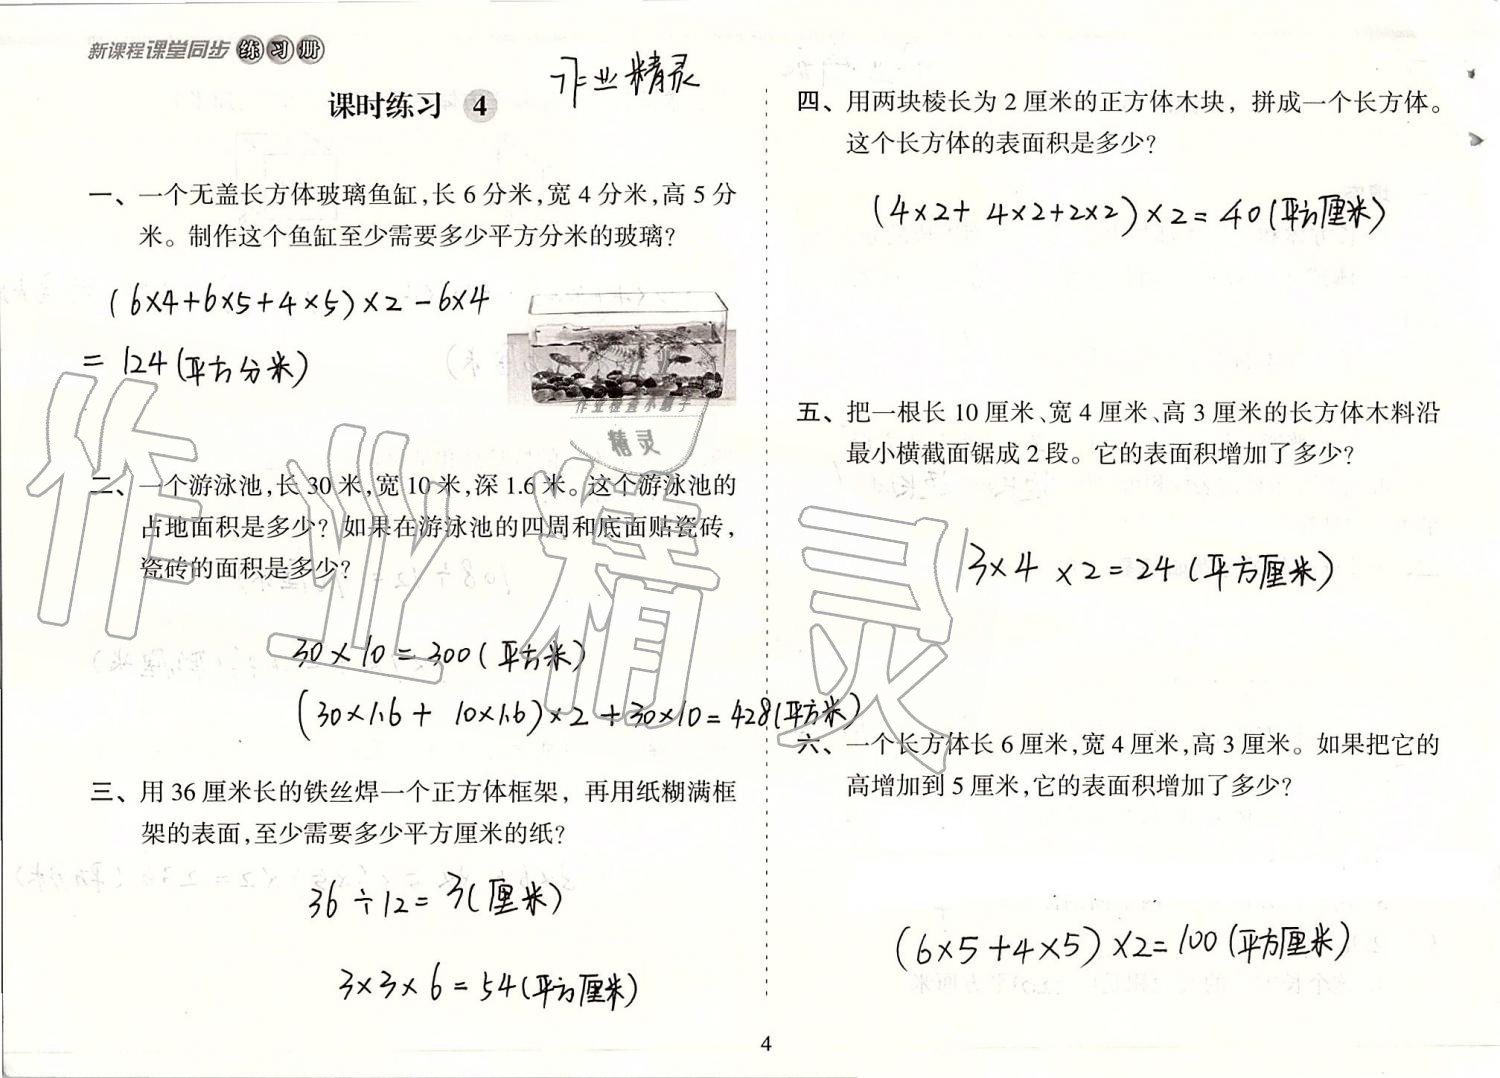 新课程课堂同步练习册
作业精灵
课时练习 4
一、一个无盖长方体玻璃鱼缸,长6分米,宽4分米,高5分
米。制作这个鱼缸至少需要多少平方分米的玻璃?
(6×4+6×5+4×5)×2-6×4
=124(平方分米)
作业检查小助手
精灵
二、一个游泳池,长30米,宽10米,深1.6米。这个游泳池的
占地面积是多少?如果在游泳池的四周和底面贴瓷砖,
瓷砖的面积是多少?
30×10=300(平方米)
(30×1.6+10×1.6)×2+30×10=428(平方米)
三、用36厘米长的铁丝焊一个正方体框架,再用纸糊满框
架的表面,至少需要多少平方厘米的纸?
36÷12=3(厘米)
3×3×6=54(平方厘米)
四、用两块棱长为2厘米的正方体木块,拼成一个长方体。
这个长方体的表面积是多少?
(4×2+4×2+2×2)×2=40(平方厘米)
五、把一根长10厘米、宽4厘米、高3厘米的长方体木料沿
最小横截面锯成2段。它的表面积增加了多少?
3×4×2=24(平方厘米)
六、一个长方体长6厘米,宽4厘米,高3厘米。如果把它的
高增加到5厘米,它的表面积增加了多少?
(6×5+4×5)×2=100(平方厘米)
4
作业精灵